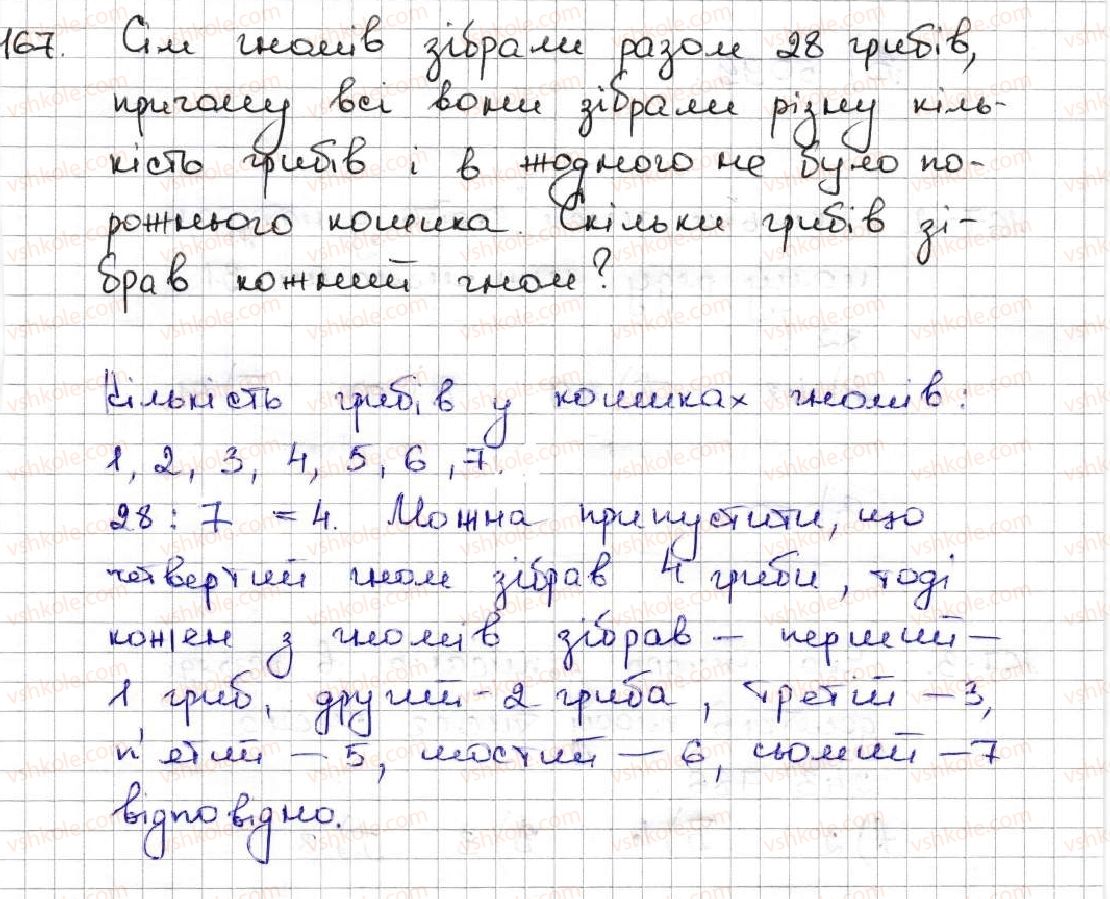 167. Сім гномів зібрали разом 28 грибів,
причому всі вони зібрали різну кіль-
кість грибів і в жодного не було по-
рожнього кошика. Скільки грибів зі-
брав кожний гном?
Кількість грибів у кошиках гномів:
1, 2, 3, 4, 5, 6, 7.
28 : 7 = 4. Можна припустити, що
четвертий гном зібрав 4 гриби, тоді
кожен з гномів зібрав – перший –
1 гриб, другий – 2 гриба, третій – 3,
п'ятий – 5, шостий – 6, сьомий – 7
відповідно.